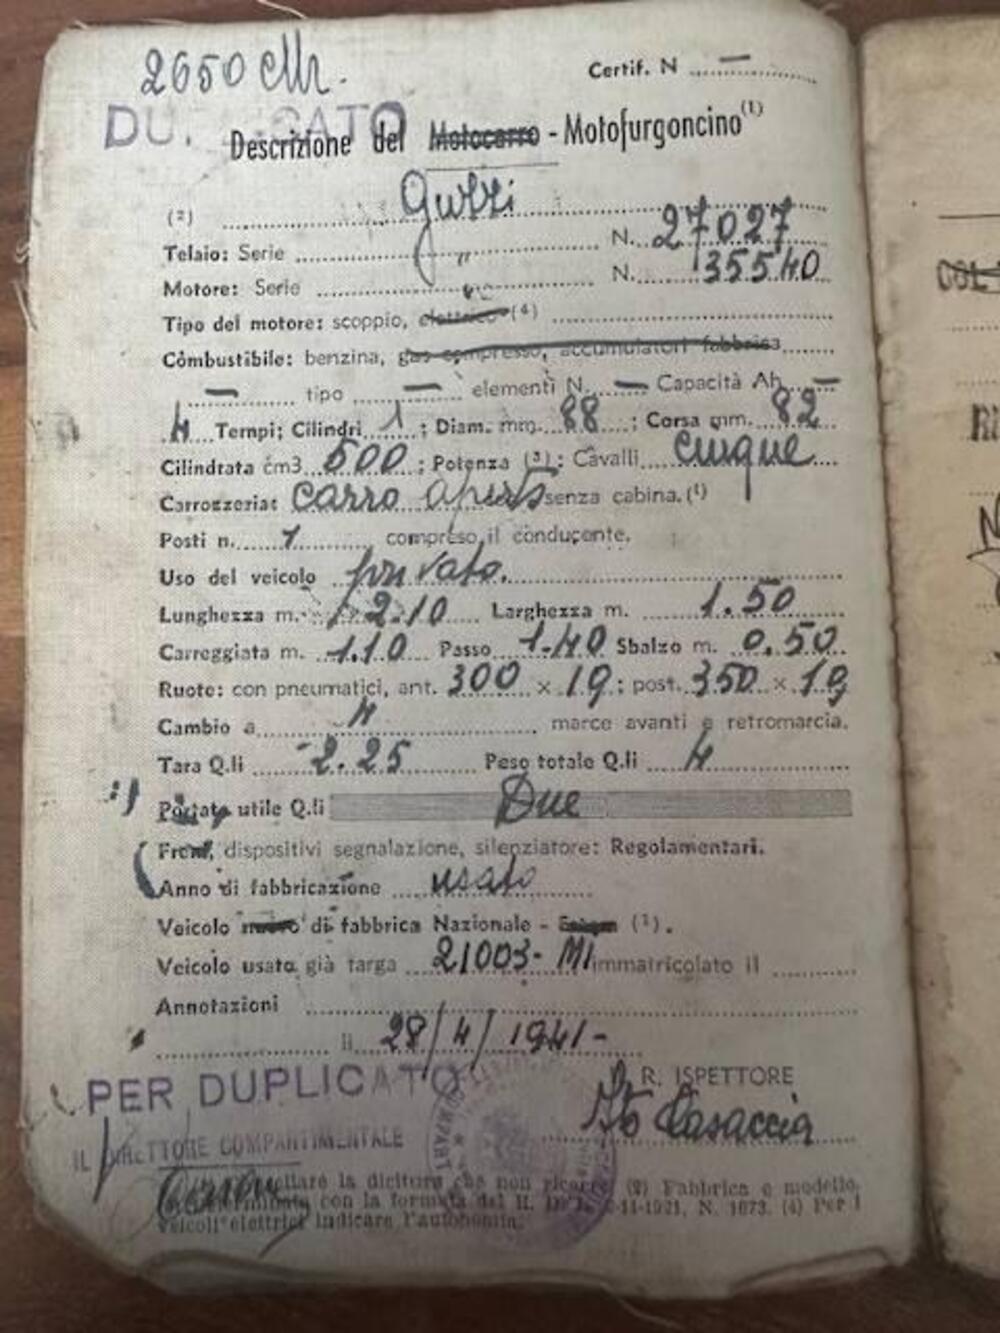 2650 CMr.
Certif. N —
DU CATO
Descrizione del Motocarro - Motofurgoncino (1)
(2) Guzzi
Telaio: Serie N. 27027
Motore: Serie " N. 35540
Tipo del motore: scoppio, elettrico (4)
Combustibile: benzina, gas compresso, accumulatori fabbrica
— tipo — elementi N. — Capacità Ah. —
4 Tempi; Cilindri 1; Diam. mm. 88; Corsa mm. 82
Cilindrata cm3 500; Potenza (3): Cavalli cinque
Carrozzeria: carro aperto senza cabina. (1)
Posti n. 1 compreso il conducente.
Uso del veicolo privato.
Lunghezza m. 2.10 Larghezza m. 1.50
Carreggiata m. 1.10 Passo 1.40 Sbalzo m. 0.50
Ruote: con pneumatici, ant. 300 × 19; post. 350 × 19
Cambio a 4 marce avanti e retromarcia.
Tara Q.li 2.25 Peso totale Q.li 4
Portata utile Q.li Due
Freni, dispositivi segnalazione, silenziatore: Regolamentari.
Anno di fabbricazione usato
Veicolo nuovo di fabbrica Nazionale - Estera (1).
Veicolo usato già targa 21003-MI immatricolato il
Annotazioni
li 28/4/1941-
PER DUPLICATO
R. ISPETTORE
Casaccia
IL DIRETTORE COMPARTIMENTALE
la dicitura che non ricorre (2) Fabbrica e modello
con la formula del R. -11-1921, N. 1673. (4) Per i
veicoli elettrici indicare l'autonomia.